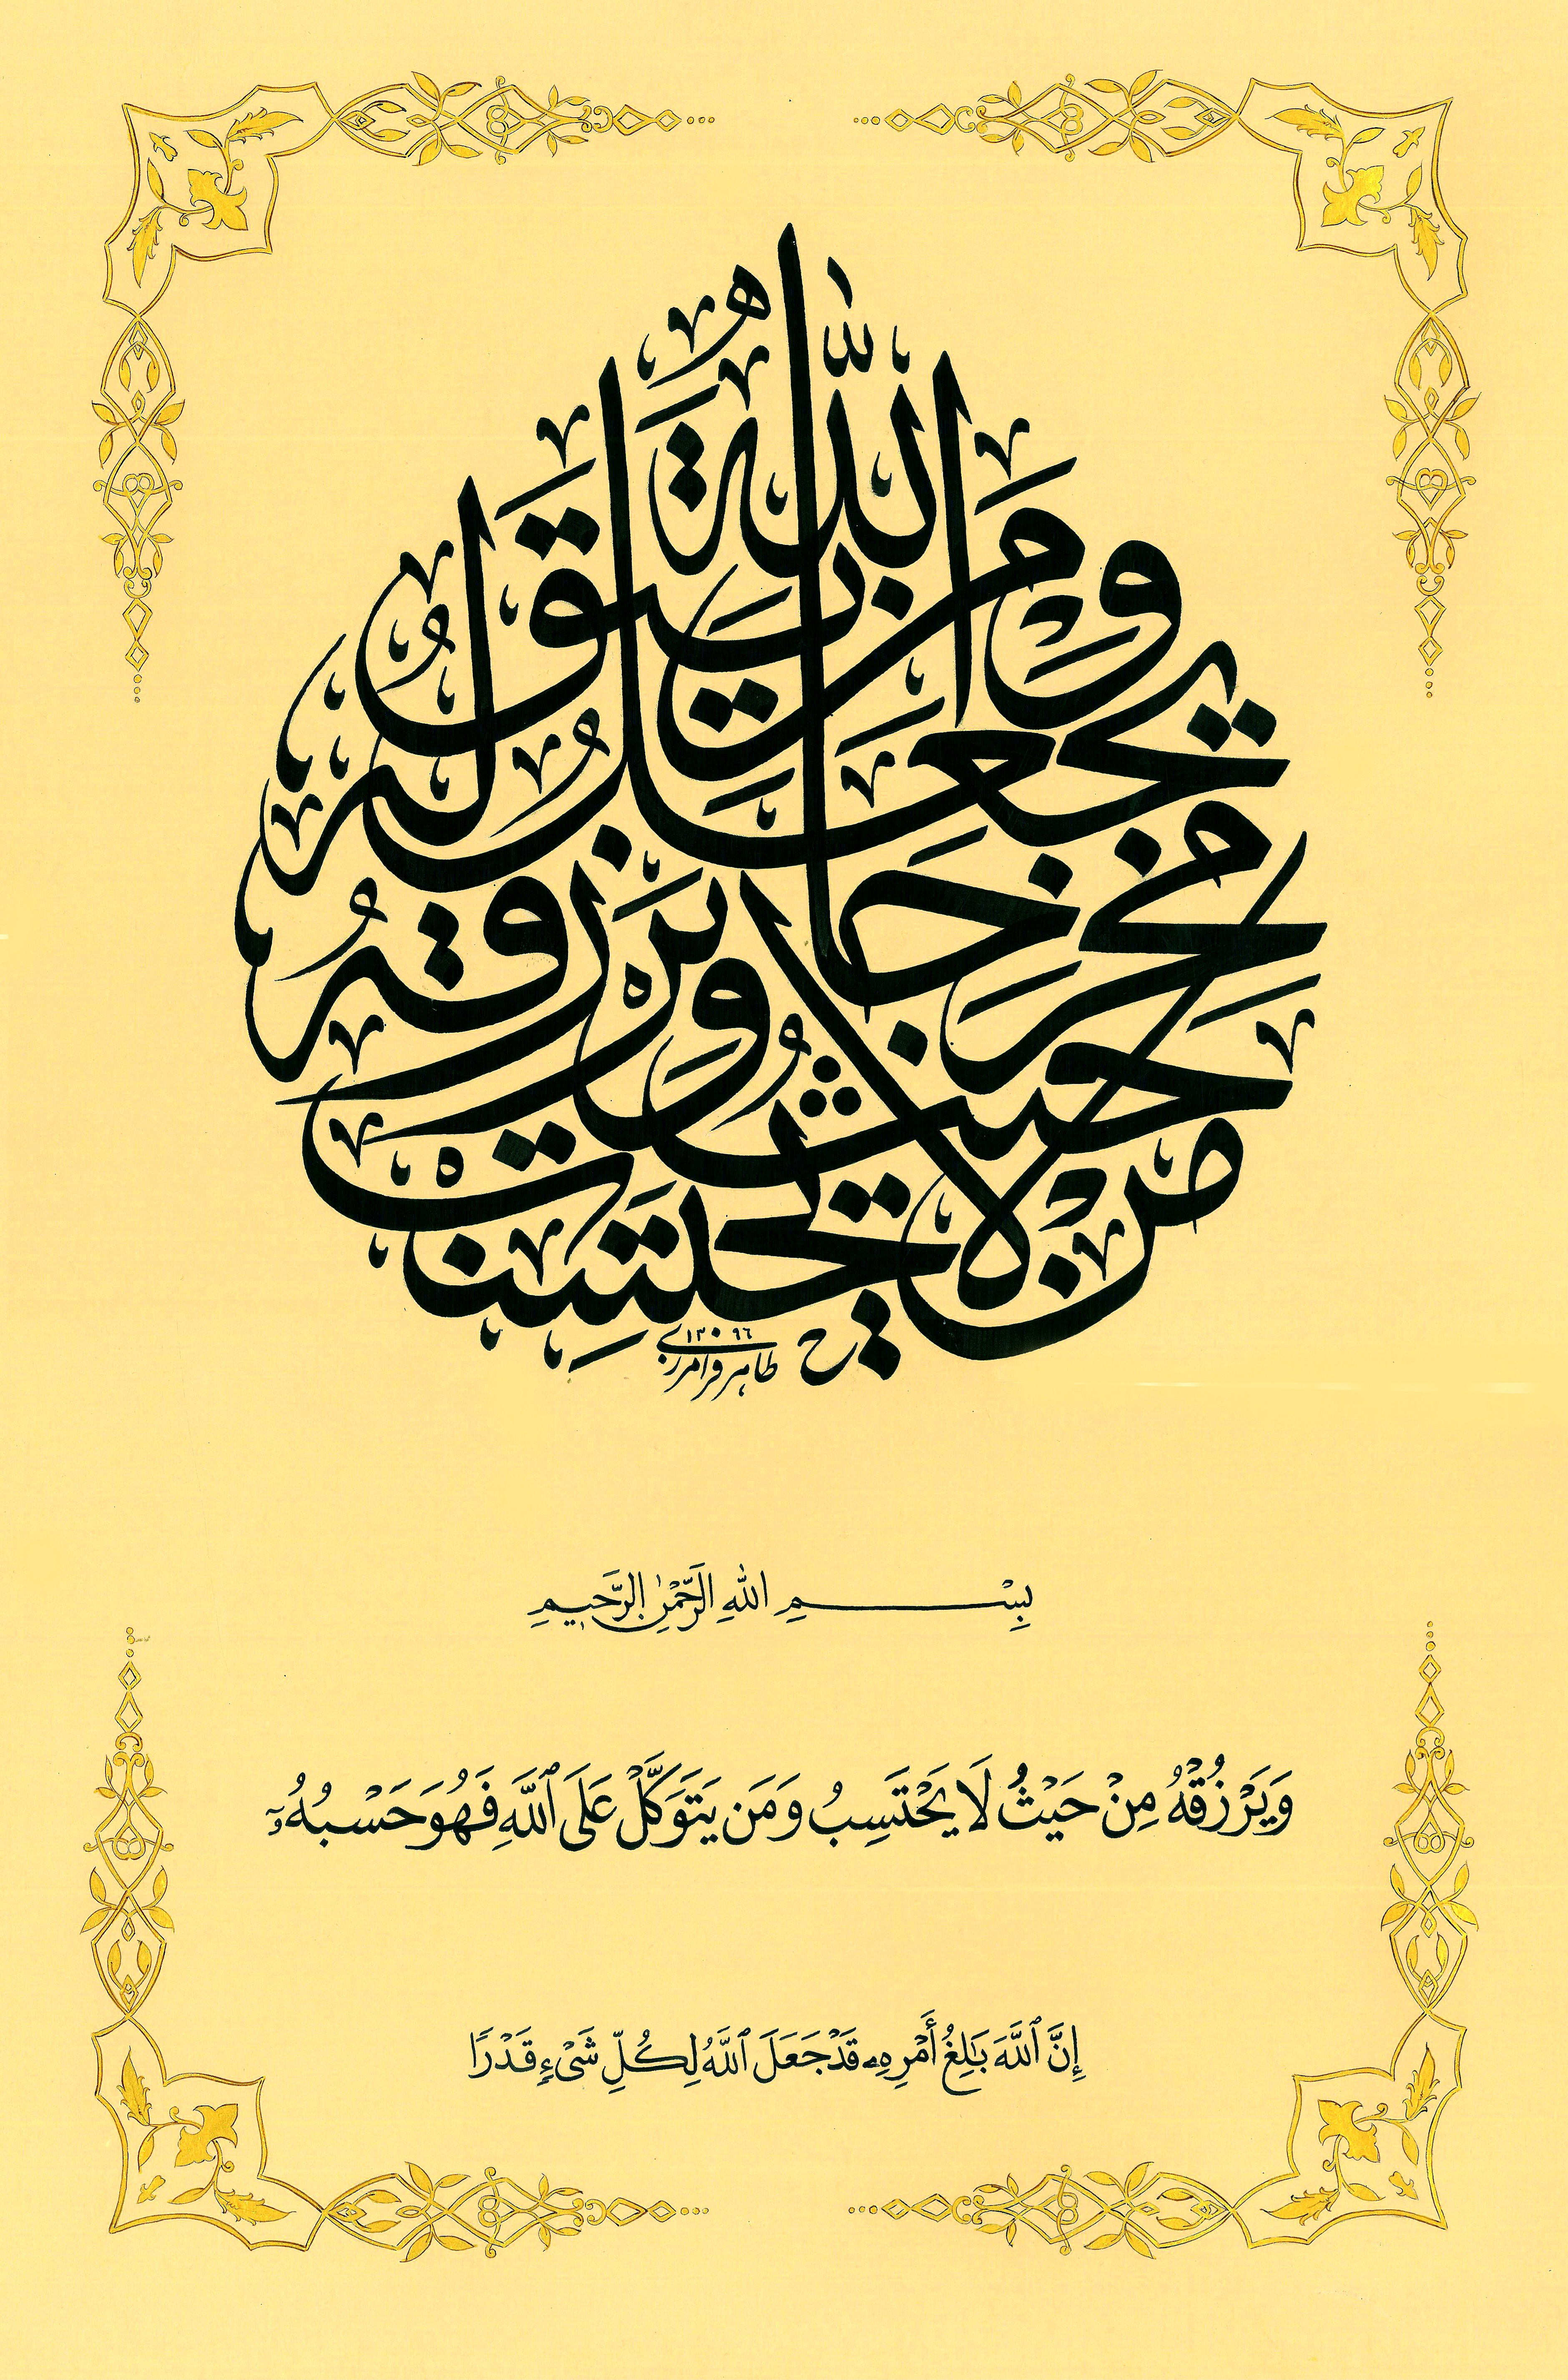 وَمَن يَتَّقِ ٱللَّهَ يَجْعَل لَّهُ مَخْرَجًا وَيَرْزُقْهُ مِنْ حَيْثُ لَا يَحْتَسِبُ
طاهر فرامرزی ١٣٩٦
بِسْمِ اللهِ الرَّحْمٰنِ الرَّحِيمِ
وَيَرْزُقْهُ مِنْ حَيْثُ لَا يَحْتَسِبُ وَمَن يَتَوَكَّلْ عَلَى ٱللَّهِ فَهُوَ حَسْبُهُۥٓ
إِنَّ ٱللَّهَ بَـٰلِغُ أَمْرِهِۦ قَدْ جَعَلَ ٱللَّهُ لِكُلِّ شَىْءٍ قَدْرًا